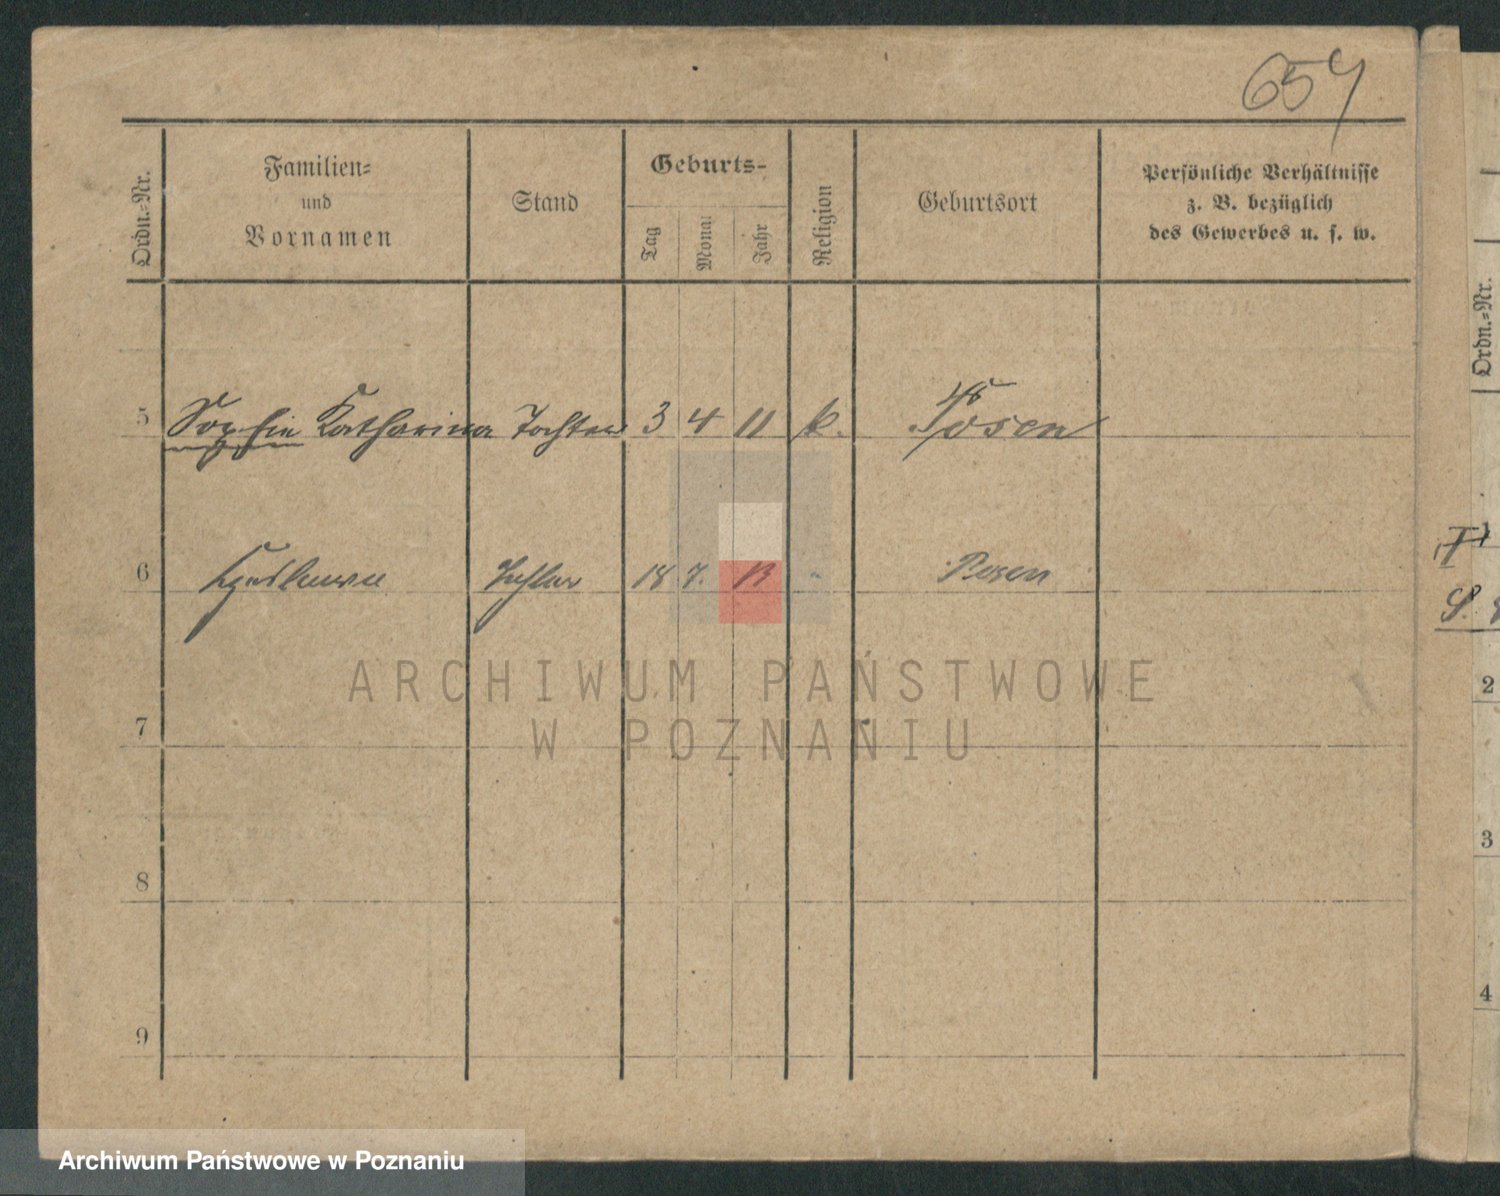 657
Ordn.-Nr.
Familien-
und
Vornamen
Stand
Geburts-
Tag
Monat
Jahr
Religion
Geburtsort
Persönliche Verhältnisse
z. B. bezüglich
des Gewerbes u. s. w.
5 Sophie Katharina Tochter 3 4 11 k. Posen
6 18 7. 13 " Posen
7
8
9
Ordn.-Nr.
1
2
3
4
ARCHIWUM PAŃSTWOWE
W POZNANIU
Archiwum Państwowe w Poznaniu